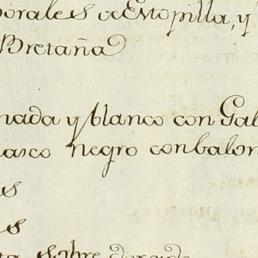 porales â Estopilla, y
Bretaña
nada y blanco con Gal
asco negro con balon
s
s
ta sobre dorado